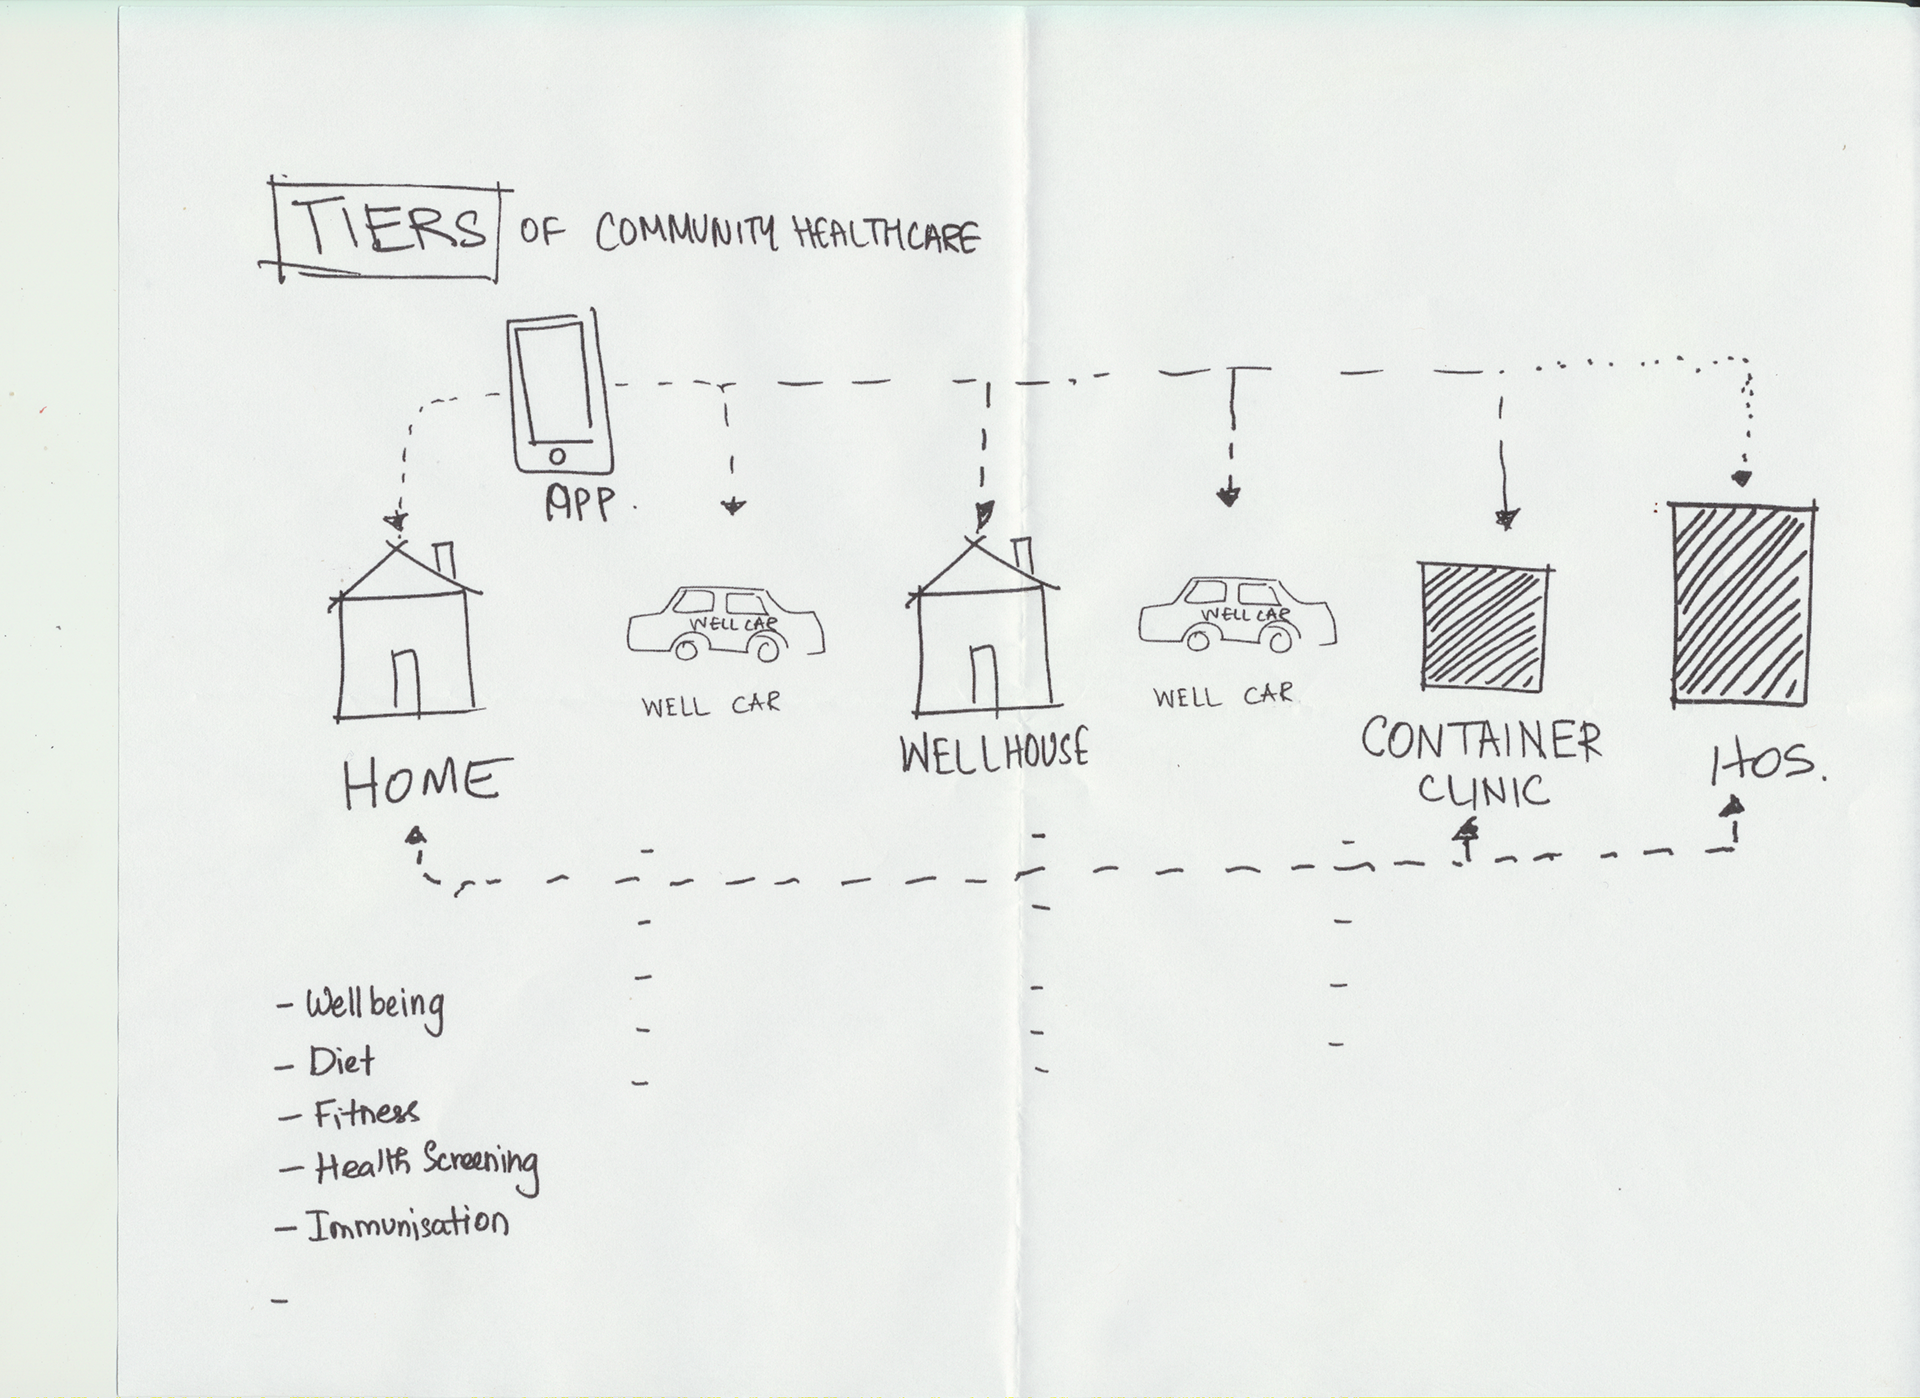 TIERS OF COMMUNITY HEALTHCARE
APP.
WELL CAR
WELL CAR
WELL CAR
WELL CAR
HOME
WELLHOUSE
CONTAINER
CLINIC
HOS.
- Wellbeing
- Diet
- Fitness
- Health Screening
- Immunisation
-